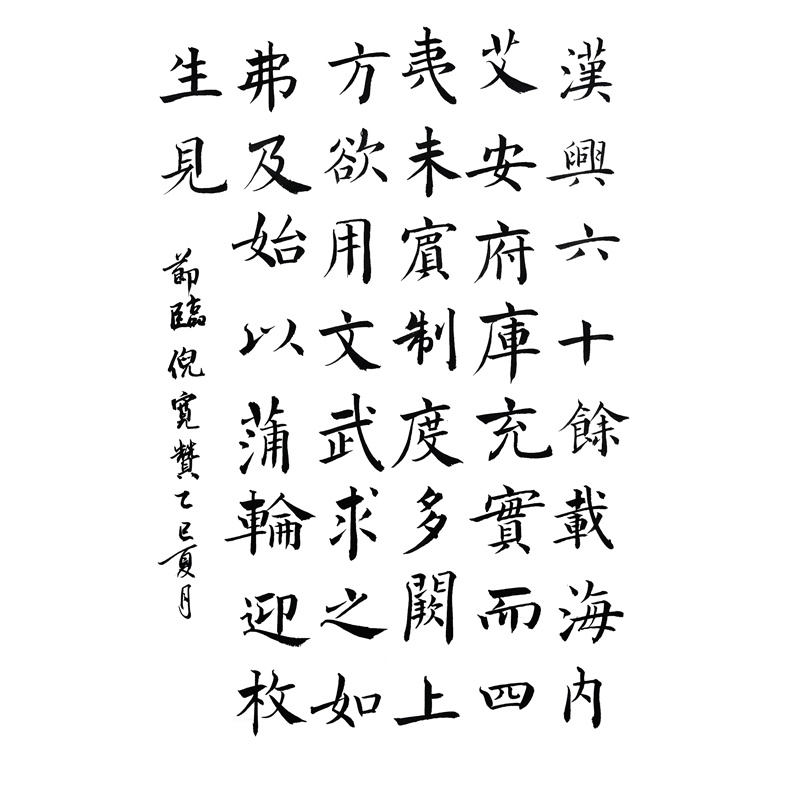 漢興六十餘載海内
艾安府庫充實而四
夷未賓制度多闕上
方欲用文武求之如
弗及始以蒲輪迎枚
生見
節臨倪寬贊乙巳夏月